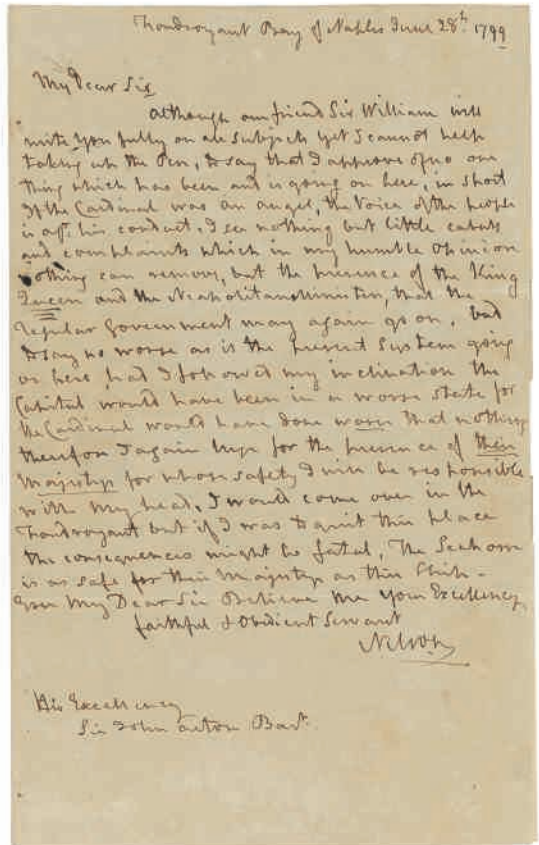 Foudroyant Bay of Naples June 28th. 1799
My Dear Sir
Although our friend Sir William will
write you fully on all subjects yet I cannot help
taking up the Pen, to say that I approve of no one
thing which has been and is going on here, in short
if the Cardinal was an angel, the Voice of the people
is agt. his conduct. I see nothing but little cabals
and complaints which in my humble opinion
nothing can remove, but the presence of the King
Queen and the Neapolitan Minister, that the
regular Government may again go on, bad
to say no worse as is the present System going
on here had I followed my inclination the
Capital would have been in a worse state for
the Cardinal would have done worse than nothing
therefore I again hope for the presence of their
Majestys for whose safety I will be responsible
with my head. I would come over in the
Foudroyant but if I was to quit this place
the consequences might be fatal, The Seahorse
is as safe for their Majestys as this Ship -
Ever My Dear Sir Believe me your Excellency
faithful & Obedient Servant
Nelson
His Excellency
Sir John Acton Bart.